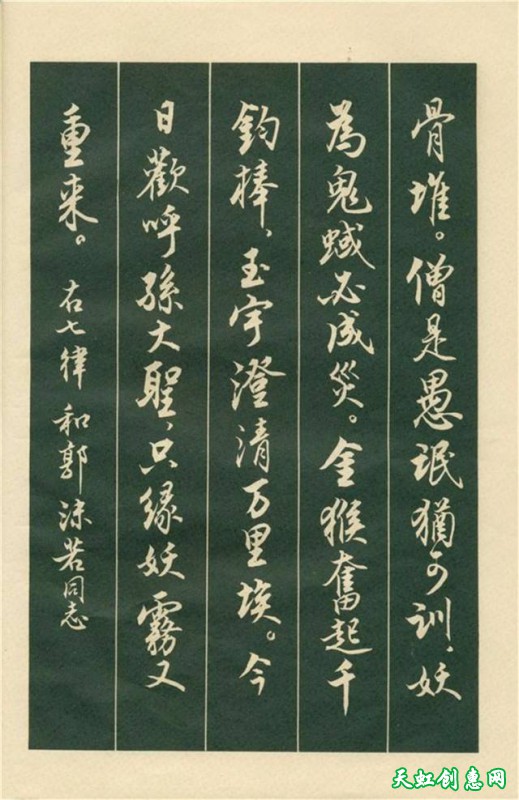 骨堆。僧是愚氓猶可训，妖
為鬼蜮必成災。金猴奮起千
鈞棒，玉宇澄清万里埃。今
日歡呼孫大聖，只缘妖霧又
重来。 右七律 和郭沫若同志
天虹创惠网